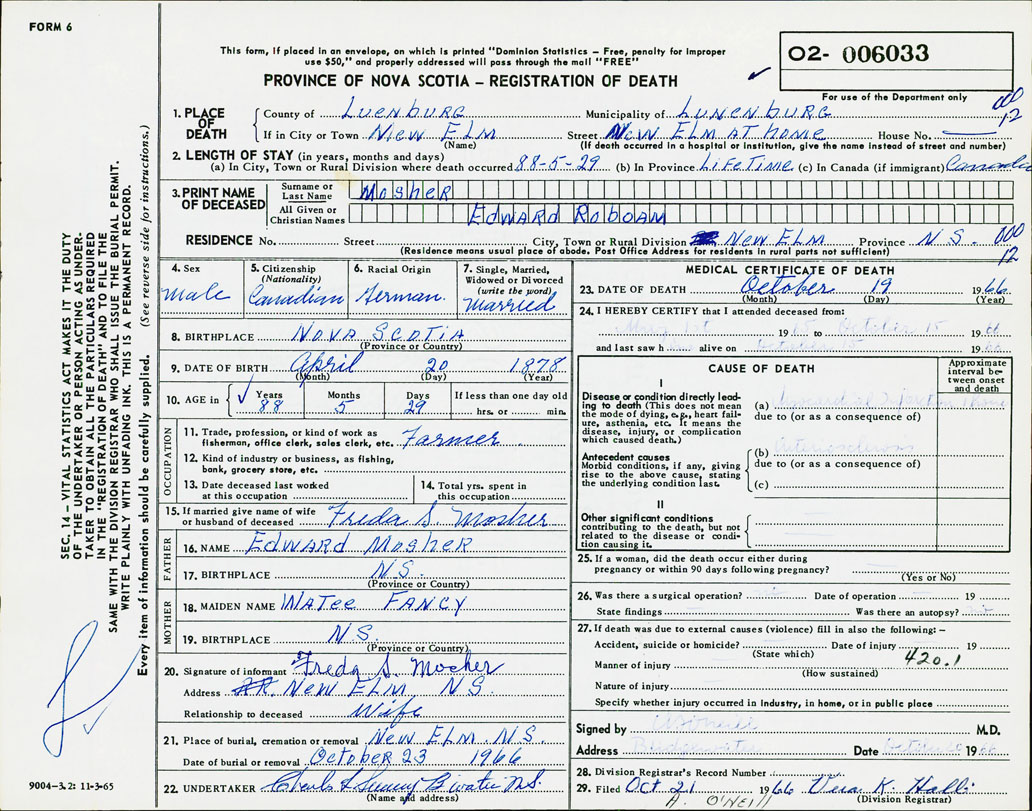 FORM 6
This form, if placed in an envelope, on which is printed "Dominion Statistics – Free, penalty for improper
use $50," and properly addressed will pass through the mail "FREE"
PROVINCE OF NOVA SCOTIA – REGISTRATION OF DEATH
O2- 006033
For use of the Department only
1. PLACE OF DEATH
County of LuenBURG Municipality of LUNENBURG
If in City or Town New ELM Street New ELM AT home House No.
(Name) (If death occurred in a hospital or institution, give the name instead of street and number)
12
2. LENGTH OF STAY (in years, months and days)
(a) In City, Town or Rural Division where death occurred 88-5-29 (b) In Province LifeTime (c) In Canada (if immigrant) Canada
3. PRINT NAME OF DECEASED
Surname or Last Name MosheR
All Given or Christian Names EdwaRd RoboAm
RESIDENCE No. Street City, Town or Rural Division New ELM Province N.S. 000
(Residence means usual place of abode. Post Office Address for residents in rural parts not sufficient) 12
4. Sex male
5. Citizenship (Nationality) Canadian
6. Racial Origin German.
7. Single, Married, Widowed or Divorced (write the word) married
8. BIRTHPLACE NOVA SCOTIA
(Province or Country)
9. DATE OF BIRTH April 20 1878
(Month) (Day) (Year)
10. AGE in Years 88 Months 5 Days 29 If less than one day old hrs. or min.
OCCUPATION
11. Trade, profession, or kind of work as
fisherman, office clerk, sales clerk, etc. Farmer
12. Kind of industry or business, as fishing,
bank, grocery store, etc.
13. Date deceased last worked
at this occupation
14. Total yrs. spent in
this occupation
15. If married give name of wife
or husband of deceased Freda S. Mosher
FATHER
16. NAME EdwaRd MosheR
17. BIRTHPLACE N.S.
(Province or Country)
MOTHER
18. MAIDEN NAME WATee FANCY
19. BIRTHPLACE N.S.
(Province or Country)
20. Signature of informant Freda S. Mosher
Address New ELM N.S.
Relationship to deceased Wife
21. Place of burial, cremation or removal New ELM. N.S.
Date of burial or removal October 23 1966
22. UNDERTAKER
(Name and address)
MEDICAL CERTIFICATE OF DEATH
23. DATE OF DEATH October 19 1966
(Month) (Day) (Year)
24. I HEREBY CERTIFY that I attended deceased from:
May 1st 1965 to October 15 1966
and last saw h alive on October 15 1966
CAUSE OF DEATH
Approximate interval between onset and death
I
Disease or condition directly leading
to death (This does not mean
the mode of dying, e.g., heart failure,
asthenia, etc. It means the
disease, injury, or complication
which caused death.)
(a) Myocardial Infarction
due to (or as a consequence of)
Antecedent causes
Morbid conditions, if any, giving
rise to the above cause, stating
the underlying condition last.
(b)
due to (or as a consequence of)
(c)
II
Other significant conditions
contributing to the death, but not
related to the disease or condition
causing it.
25. If a woman, did the death occur either during
pregnancy or within 90 days following pregnancy?
(Yes or No)
26. Was there a surgical operation? Date of operation 19
State findings Was there an autopsy?
27. If death was due to external causes (violence) fill in also the following: –
Accident, suicide or homicide? Date of injury 19
(State which) 420.1
Manner of injury
(How sustained)
Nature of injury
Specify whether injury occurred in Industry, in home, or in public place
Signed by M.D.
Address Bridgewater Date 1966
28. Division Registrar's Record Number
29. Filed Oct 21 1966 Vera K.
(Division Registrar)
A. O'NEILL
SEC. 14 – VITAL STATISTICS ACT MAKES IT THE DUTY
OF THE UNDERTAKER OR PERSON ACTING AS UNDER-
TAKER TO OBTAIN ALL THE PARTICULARS REQUIRED
IN THE "REGISTRATION OF DEATH" AND TO FILE THE
SAME WITH THE DIVISION REGISTRAR WHO SHALL ISSUE THE BURIAL PERMIT.
WRITE PLAINLY WITH UNFADING INK. THIS IS A PERMANENT RECORD.
Every item of information should be carefully supplied. (See reverse side for instructions.)
9004-3.2: 11-3-65